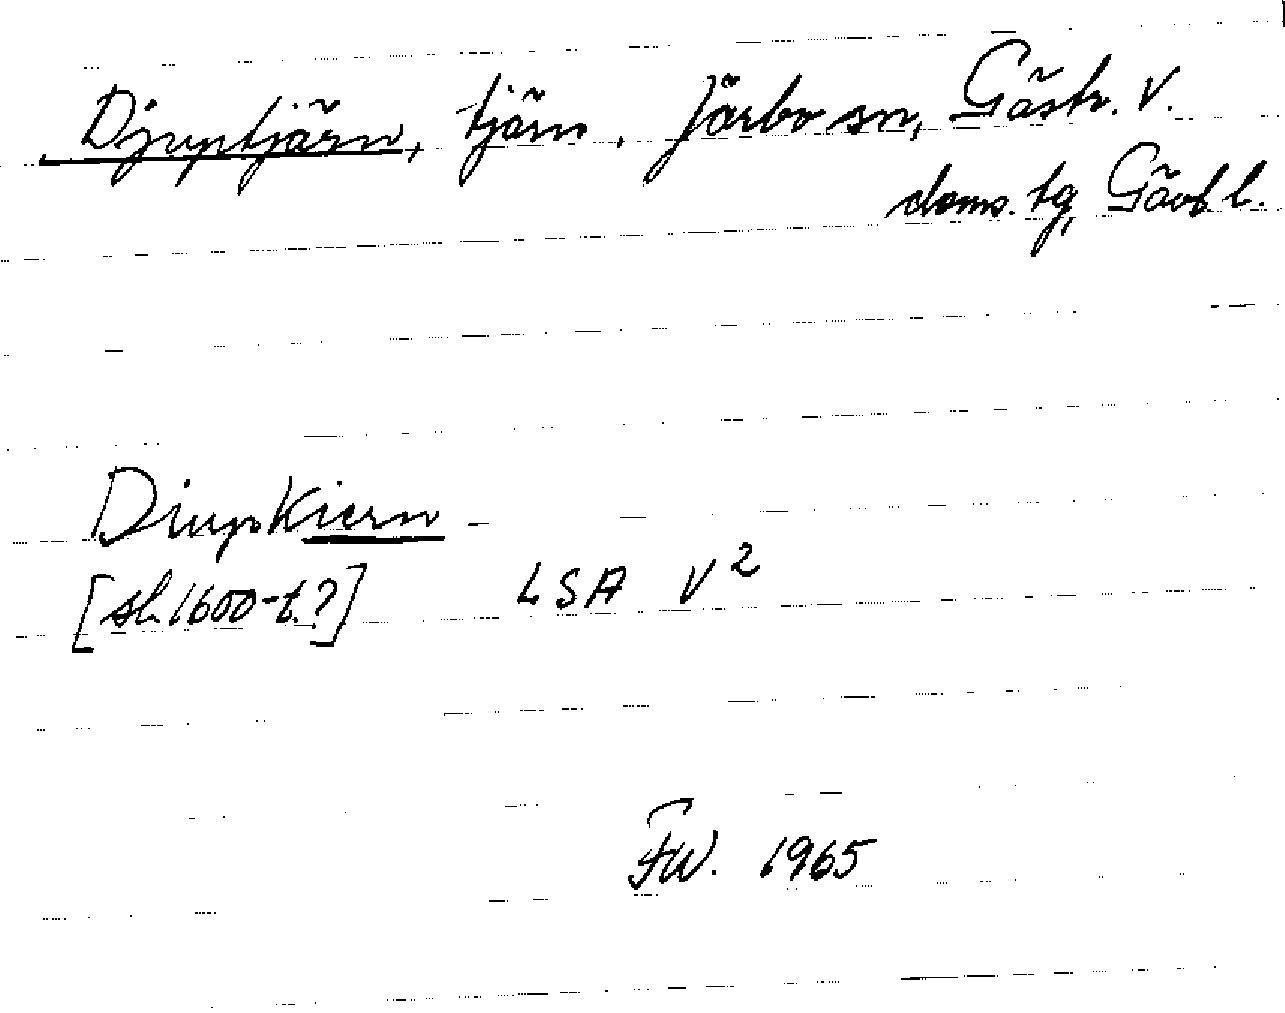 Djuptjärn, tjärn, Järbo sn, Gästr. V.
doms. tg, Gävl. l.
DiupKiern
[sl. 1600-t.?] LSA V²
FW. 1965